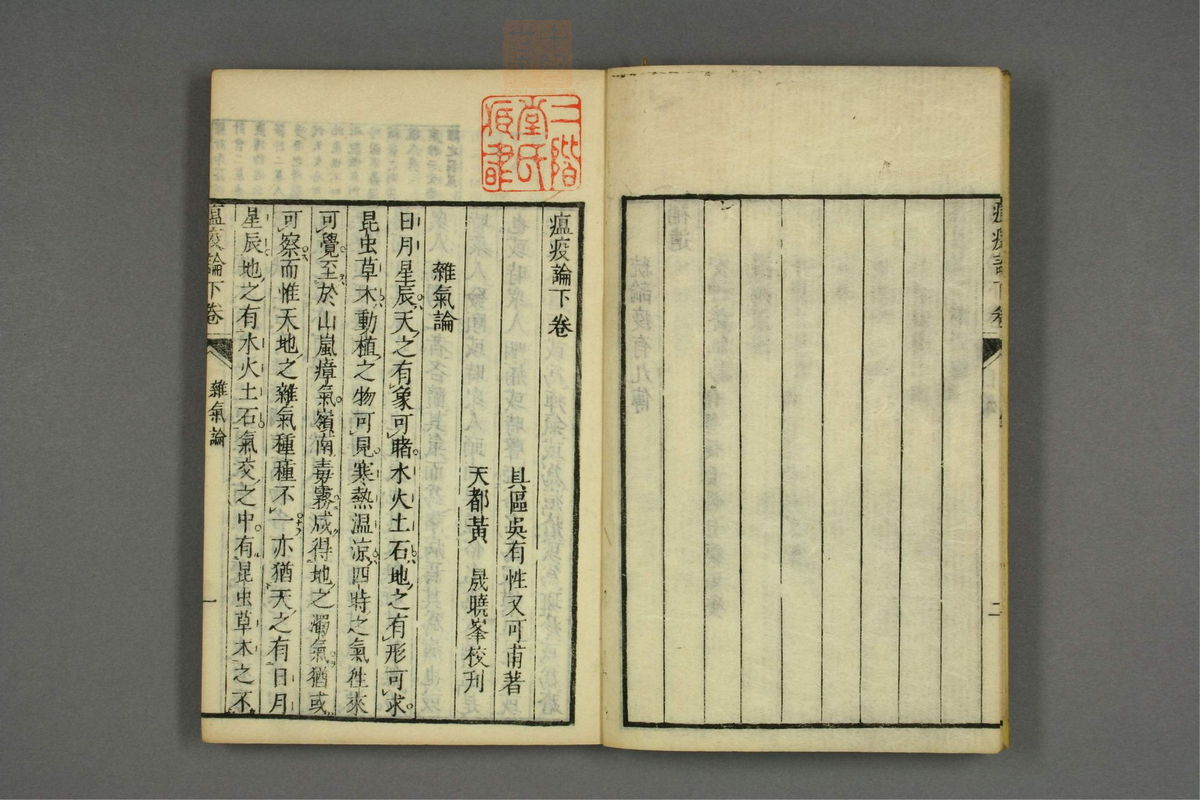 瘟疫論下卷
二
二階
堂氏
瘟疫論下卷
具區吳有性又可甫著
天都黃　晟曉峯校刊
雜氣論
日月星辰天之有象可睹水火土石地之有形可求
昆虫草木動植之物可見寒熱温凉四時之氣徃來
可覺至於山嵐瘴氣嶺南毒霧咸得地之濁氣猶或
可察而惟天地之雜氣種種不一亦猶天之有日月
星辰地之有水火土石氣交之中有昆虫草木之不
瘟疫論下卷
雜氣論
一